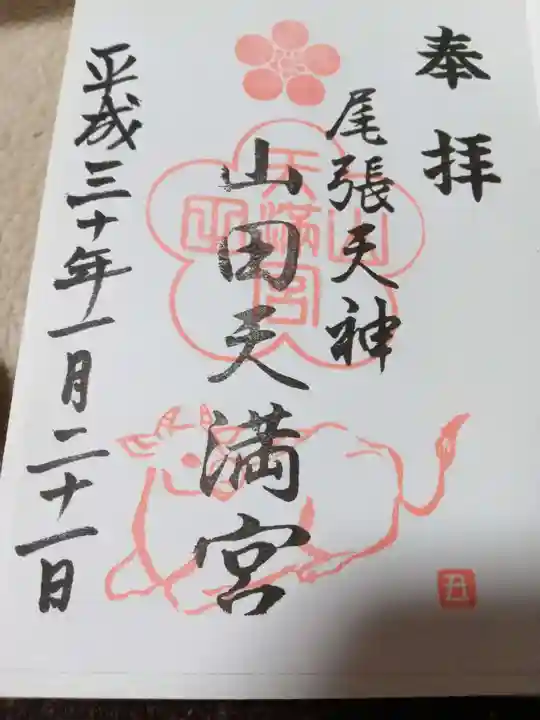 奉拝
尾張天神
山田天満宮
平成三十年一月二十一日
山田
天満宮
丑